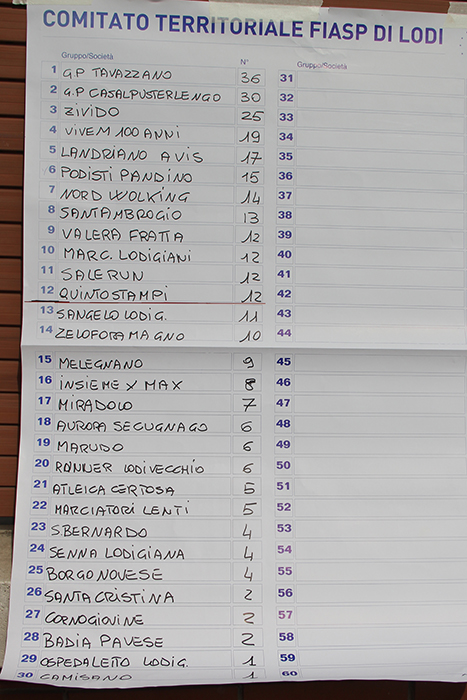 COMITATO TERRITORIALE FIASP DI LODI
Gruppo/Società N° Gruppo/Società
1 G.P TAVAZZANO 36 31
2 G.P CASALPUSTERLENGO 30 32
3 ZIVIDO 25 33
4 VIVEM 100 ANNI 19 34
5 LANDRIANO AVIS 17 35
6 PODISTI PANDINO 15 36
7 NORD WOLKING 14 37
8 SANTAMBROGIO 13 38
9 VALERA FRATTA 12 39
10 MARC. LODIGIANI 12 40
11 SALERUN 12 41
12 QUINTOSTAMPI 12 42
13 SANGELO LODIG. 11 43
14 ZELOFORAMAGNO 10 44
15 MELEGNANO 9 45
16 INSIEME X MAX 8 46
17 MIRADOLO 7 47
18 AURORA SECUGNAGO 6 48
19 MARUDO 6 49
20 RONNER LODIVECCHIO 6 50
21 ATLEICA CERTOSA 5 51
22 MARCIATORI LENTI 5 52
23 SBERNARDO 4 53
24 SENNA LODIGIANA 4 54
25 BORGONOVESE 4 55
26 SANTA CRISTINA 2 56
27 CORNOGIOVINE 2 57
28 BADIA PAVESE 2 58
29 OSPEDALETTO LODIG. 1 59
30 CAMISANO 1 60